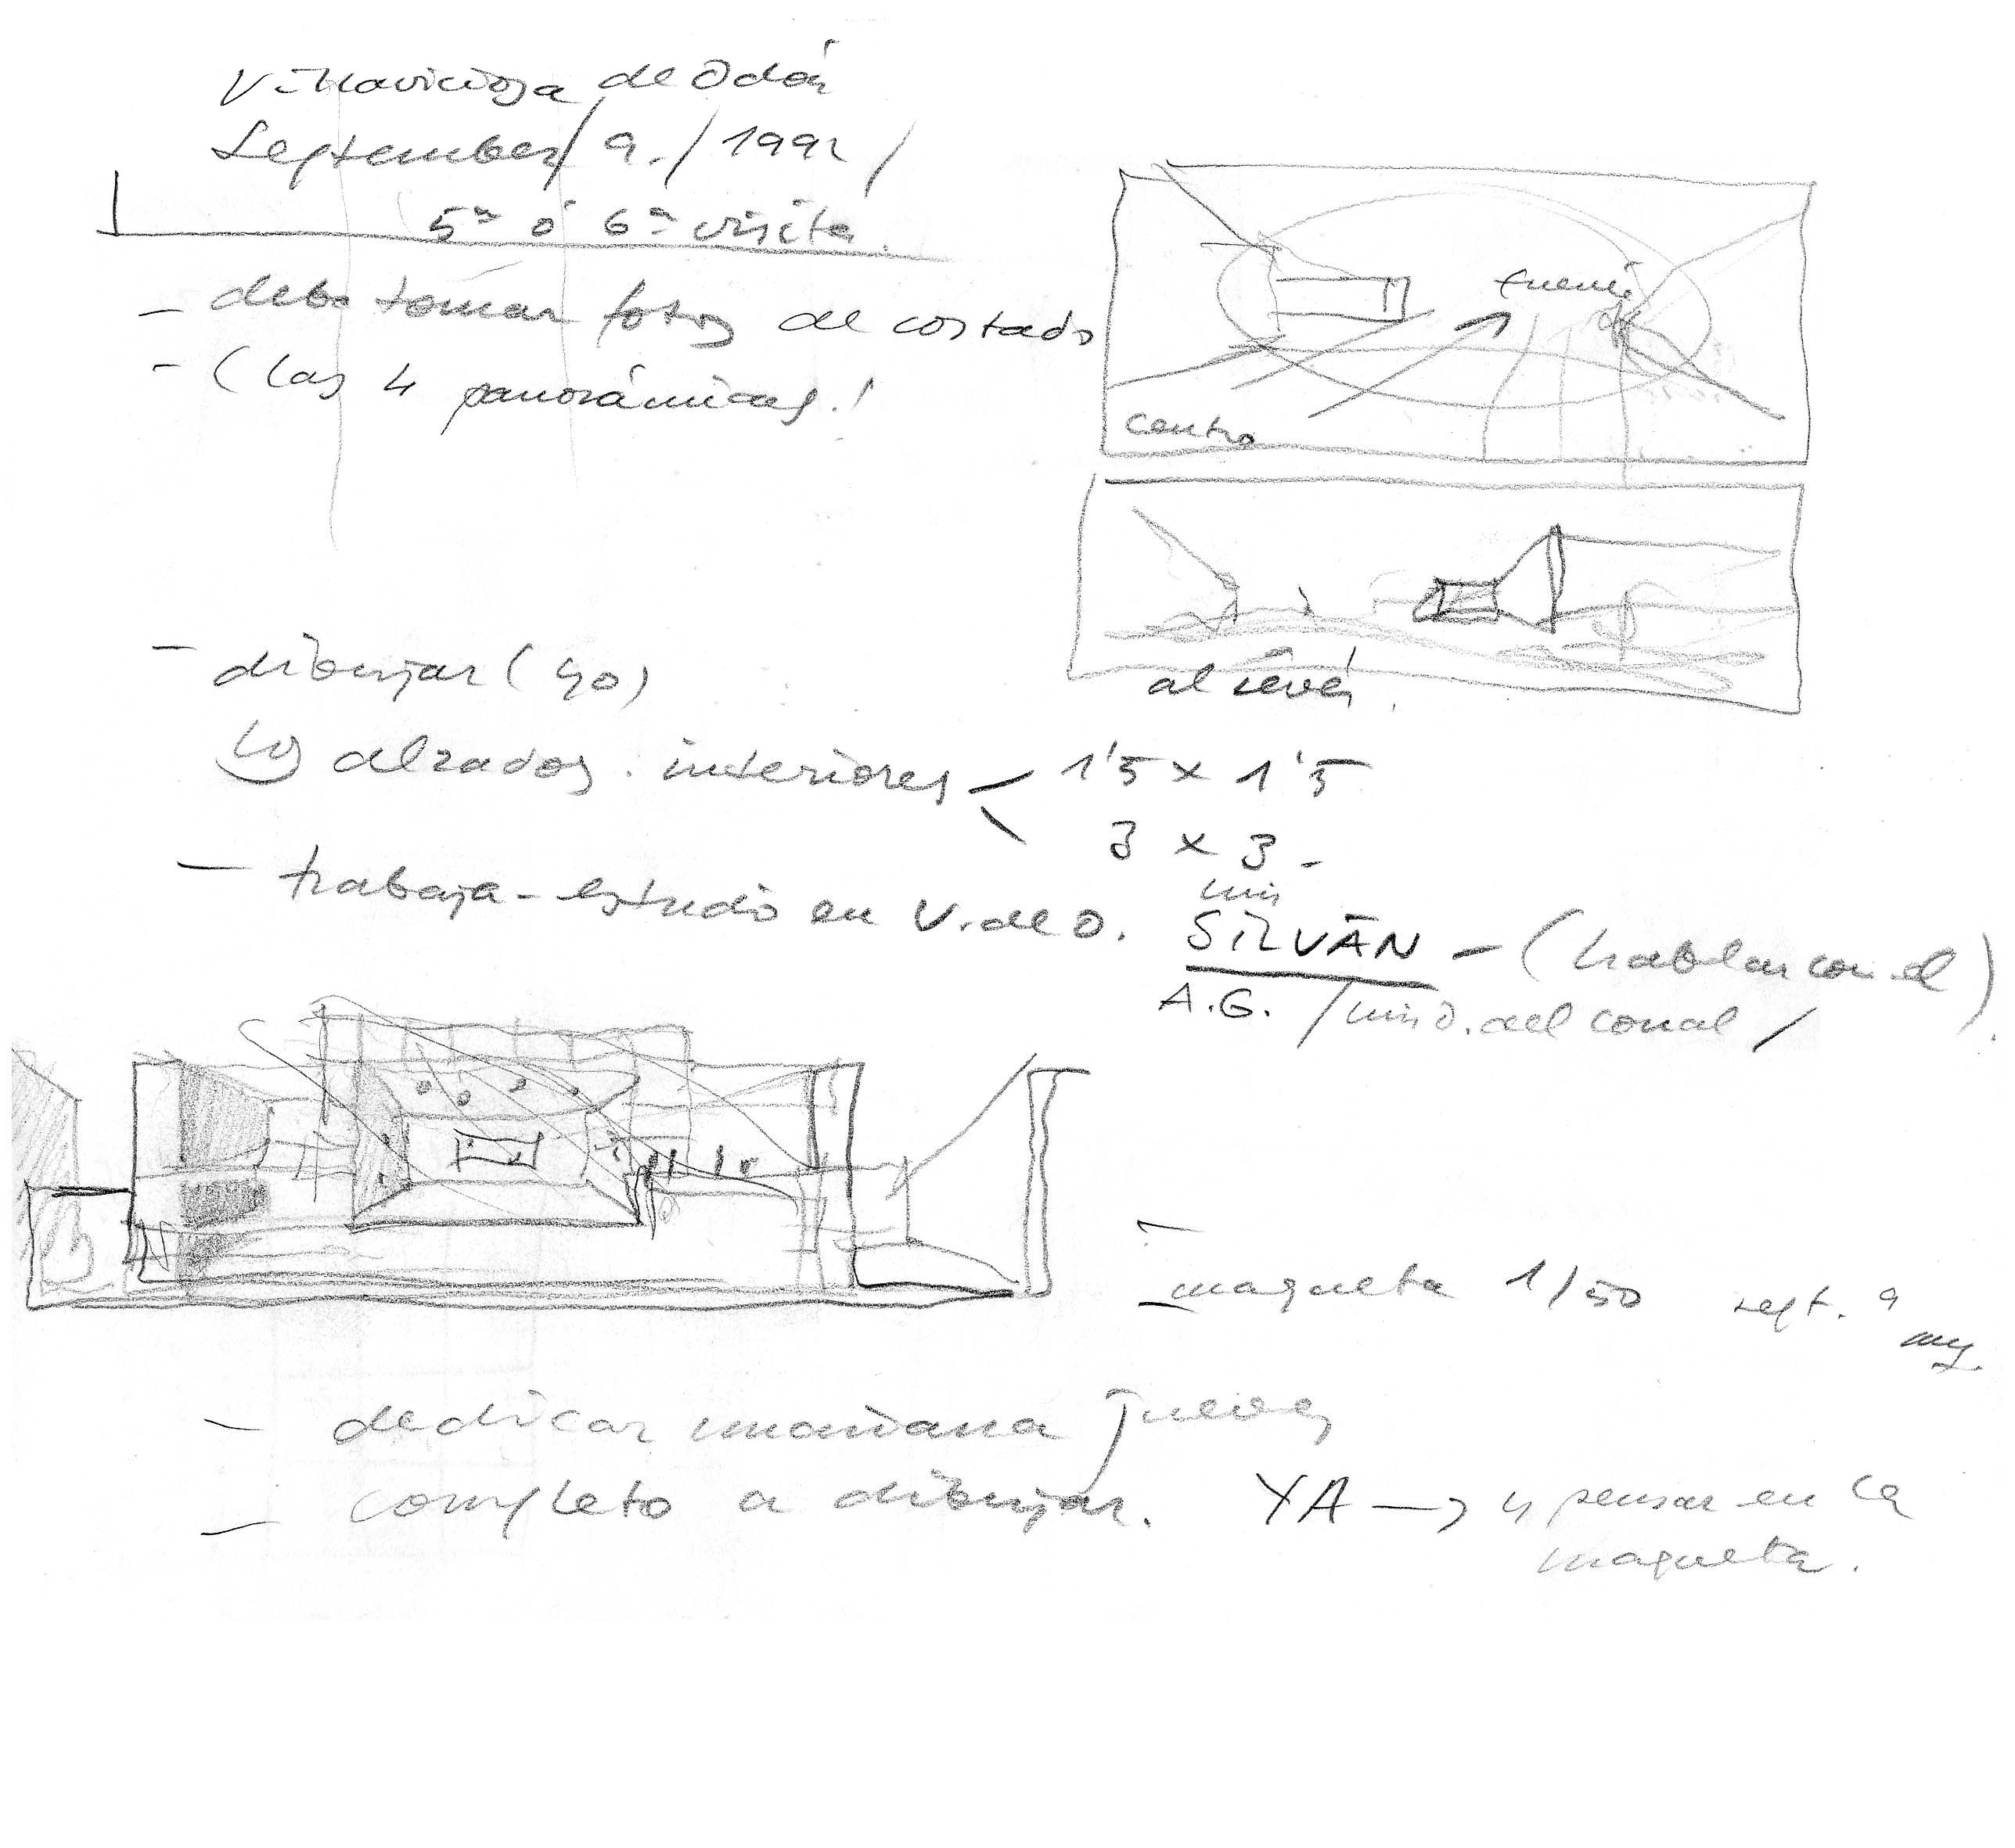 Villaviciosa de Odón
September / 9. / 1992 /
5ª ó 6ª visita.
- debo tomar fotos de costado
- (las 4 panorámicas!
centro
al revés.
- dibujar (yo)
los alzados interiores < 1'5 x 1'5
3 x 3 -
- trabaja - estudio en V. de O.
SILVÁN - (hablar con él)
A.G.
- maqueta 1/50 sept. 9
- dedicar mañana jueves
- completo a dibujar. YA → y pensar en la
maqueta.